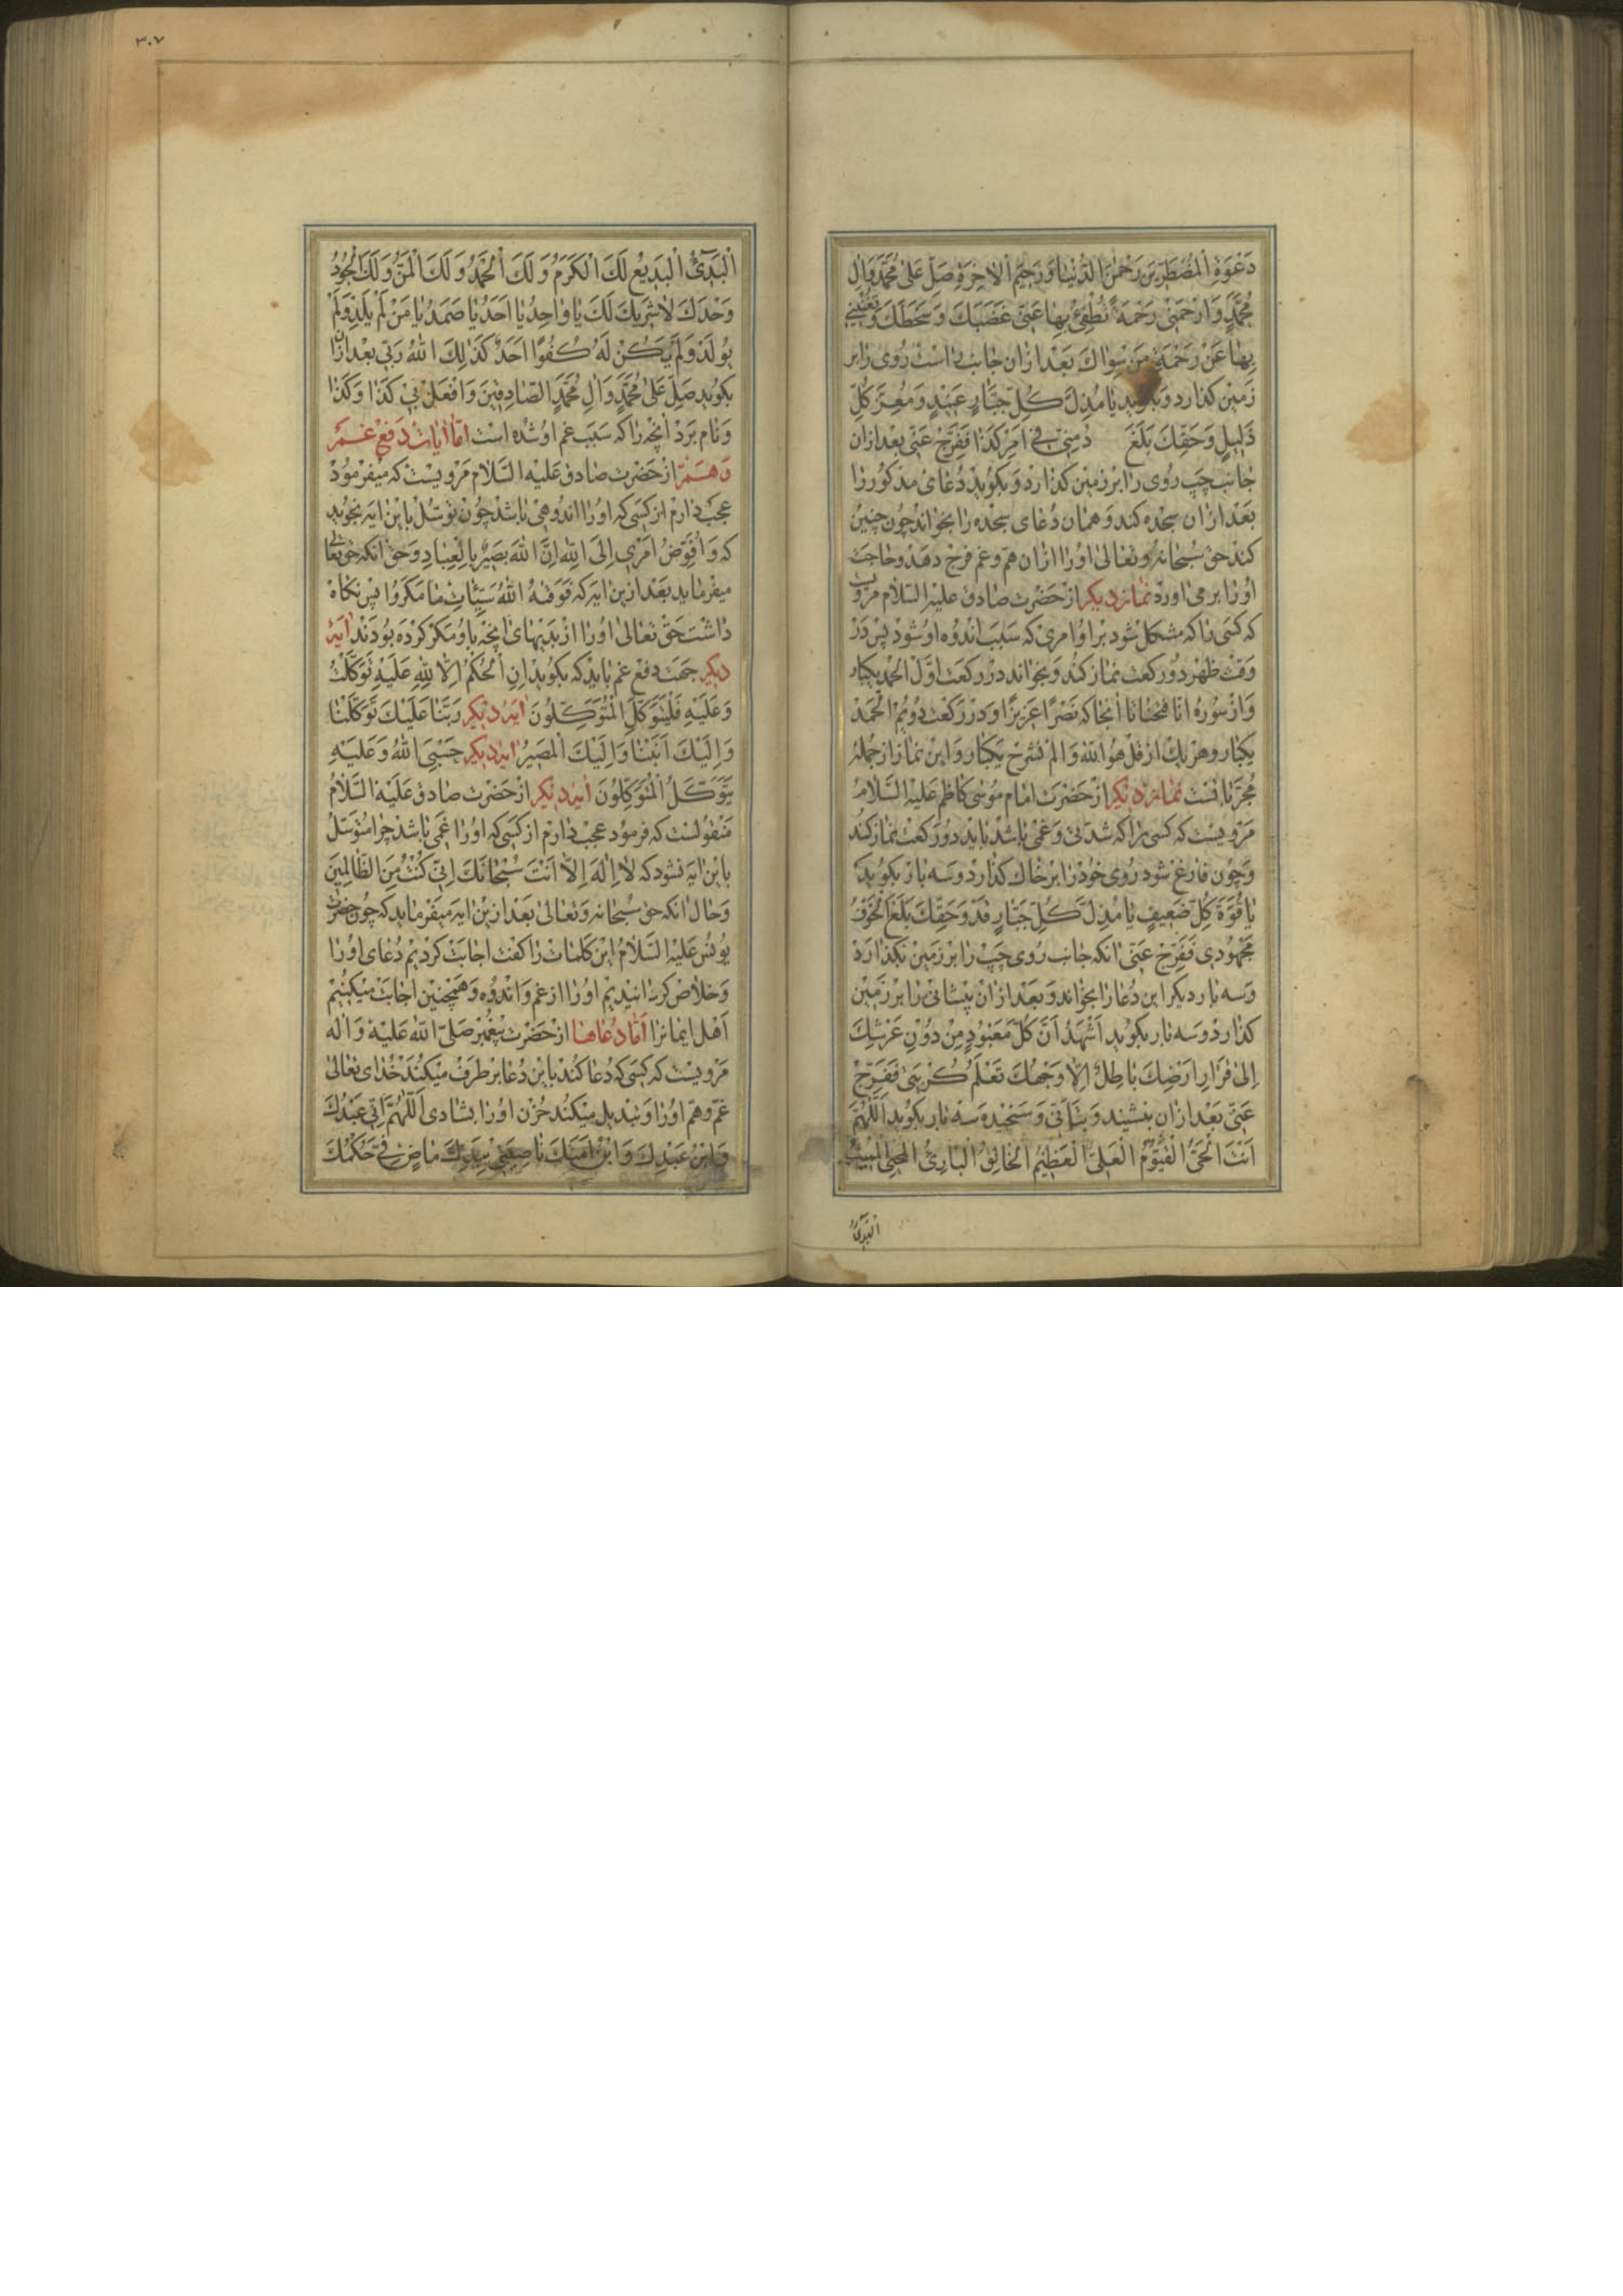 دَعْوَةِ الْمُضْطَرِّينَ رَحْمٰنَ الدُّنْيَا وَرَحِيمَ الْاٰخِرَةِ صَلِّ عَلٰى مُحَمَّدٍ وَاٰلِ
مُحَمَّدٍ وَارْحَمْنِي رَحْمَةً تُطْفِئُ بِهَا عَنِّي غَضَبَكَ وَسَخَطَكَ وَتُغْنِينِي
بِهَا عَنْ رَحْمَةِ مَنْ سِوَاكَ بعد ازان جانب راست روی را بر
زمین کذارد وبکوید يَا مُذِلَّ كُلِّ جَبَّارٍ عَنِيدٍ وَمُعِزَّ كُلِّ
ذَلِيلٍ وَحَقِّكَ بَلَغَ فِي اَمْرِ كَذَا فَفَرِّجْ عَنِّي بعد ازان
جانب چپ روی را بر زمین کذارد وبکوید دعای مذکور را
بعد ازان سجده کند وهمان دعای سجده را بخواند چون چنین
کند حق سبحانه وتعالی او را ازان هم وغم فرج دهد وحاجت
او را برمی اورد نماز دیکر از حضرت صادق علیه السلام مرویست
که کسی را که مشکل شود براو امری که سبب اندوه او شود پس در
وقت ظهر دو رکعت نماز کند وبخواند در رکعت اول الحمد یکبار
واز سوره انا فتحنا تا انجا که نَصْرًا عَزِيزًا ودر رکعت دویم الحمد
یکبار وهر یک از قل هو الله والم نشرح یکبار واین نماز از جمله
مجربا تست نماز دیکر از حضرت امام موسی کاظم علیه السلام
مرویست که کسی را که شدتی وغمی باشد باید دو رکعت نماز کند
وچون فارغ شود روی خود را بر خاک کذارد وسه بار بکوید
يَا قُوَّةَ كُلِّ ضَعِيفٍ يَا مُذِلَّ كُلِّ جَبَّارٍ قَدْ وَحَقِّكَ بَلَغَ الْخَوْفُ
مَجْهُودِي فَفَرِّجْ عَنِّي انکه جانب روی چپ را بر زمین بکذارد
وسه بار دیکر این دعا را بخواند وبعد ازان پیشانی را بر زمین
کذارد وسه بار بکوید اَشْهَدُ اَنَّ كُلَّ مَعْبُودٍ مِنْ دُونِ عَرْشِكَ
اِلٰى قَرَارِ اَرْضِكَ بَاطِلٌ اِلَّا وَجْهُكَ تَعْلَمُ كُرْبَتِي فَفَرِّجْ
عَنِّي بعد ازان بنشیند وسه بار بکوید اَللّٰهُمَّ
اَنْتَ الْحَيُّ الْقَيُّومُ الْعَلِيُّ الْعَظِيمُ الْخَالِقُ الْبَارِئُ الْمُحْيِي الْمُمِيتُ
الْبَدِئُ
٣٠٧
الْبَدِئُ الْبَدِيعُ لَكَ الْكَرَمُ وَلَكَ الْحَمْدُ وَلَكَ الْمَنُّ وَلَكَ الْجُودُ
وَحْدَكَ لَا شَرِيكَ لَكَ يَا وَاحِدُ يَا اَحَدُ يَا صَمَدُ يَا مَنْ لَمْ يَلِدْ وَلَمْ
يُولَدْ وَلَمْ يَكُنْ لَهُ كُفُوًا اَحَدٌ كَذٰلِكَ اللهُ رَبِّي بعد ازان
بکوید صَلِّ عَلٰى مُحَمَّدٍ وَاٰلِ مُحَمَّدٍ الصَّادِقِينَ وَافْعَلْ بِي كَذَا وَكَذَا
ونام برد انچه را که سبب غم او شده است اما ایات دفع غم
وهم از حضرت صادق علیه السلام مرویست که میفرمود
عجب دارم از کسی که او را اندوهی باشد چون توسل باین ایه نجوید
که وَاُفَوِّضُ اَمْرِي اِلَى اللهِ اِنَّ اللهَ بَصِيرٌ بِالْعِبَادِ وحق انکه حق تعالی
میفرماید بعد ازین ایه که فَوَقٰيهُ اللهُ سَيِّئَاتِ مَا مَكَرُوا پس نکاه
داشت حق تعالی او را از بدیهای انچه باو مکر کرده بودند ایه
دیکر جهت دفع غم باید که بکوید اِنِ الْحُكْمُ اِلَّا لِلّٰهِ عَلَيْهِ تَوَكَّلْتُ
وَعَلَيْهِ فَلْيَتَوَكَّلِ الْمُتَوَكِّلُونَ ایه دیکر رَبَّنَا عَلَيْكَ تَوَكَّلْنَا
وَاِلَيْكَ اَنَبْنَا وَاِلَيْكَ الْمَصِيرُ ایه دیکر حَسْبِيَ اللهُ وَعَلَيْهِ
يَتَوَكَّلُ الْمُتَوَكِّلُونَ ایه دیکر از حضرت صادق علیه السلام
منقولست که فرمود عجب دارم از کسی که او را غمی باشد چرا متوسل
باین ایه نشود که لَا اِلٰهَ اِلَّا اَنْتَ سُبْحَانَكَ اِنِّي كُنْتُ مِنَ الظَّالِمِينَ
وحال انکه حق سبحانه وتعالی بعد ازین ایه میفرماید که چون حضرت
یونس علیه السلام این کلمات را کفت اجابت کردیم دعای او را
وخلاص کردانیدیم او را از غم واندوه وهمچنین اجابت میکنیم
اهل ایمانرا اما دعاها از حضرت پیغمبر صلی الله علیه واله
مرویست که کسی که دعا کند باین دعا بر طرف میکند خدای تعالی
غم وهم او را وتبدیل میکند حزن او را بشادی اَللّٰهُمَّ اِنِّي عَبْدُكَ
وَابْنُ عَبْدِكَ وَابْنُ اَمَتِكَ نَاصِيَتِي بِيَدِكَ مَاضٍ فِيَّ حُكْمُكَ